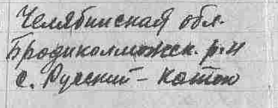 Челябинская обл.
Бродикалмакск. р-н
с. Русский-каток